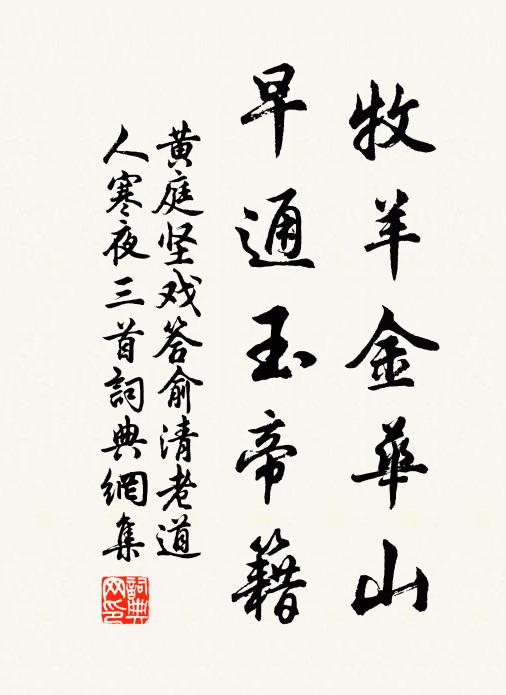 牧羊金華山
早通玉帝籍
黄庭坚戏答俞清老道
人寒夜三首詞典網集
詞典網印